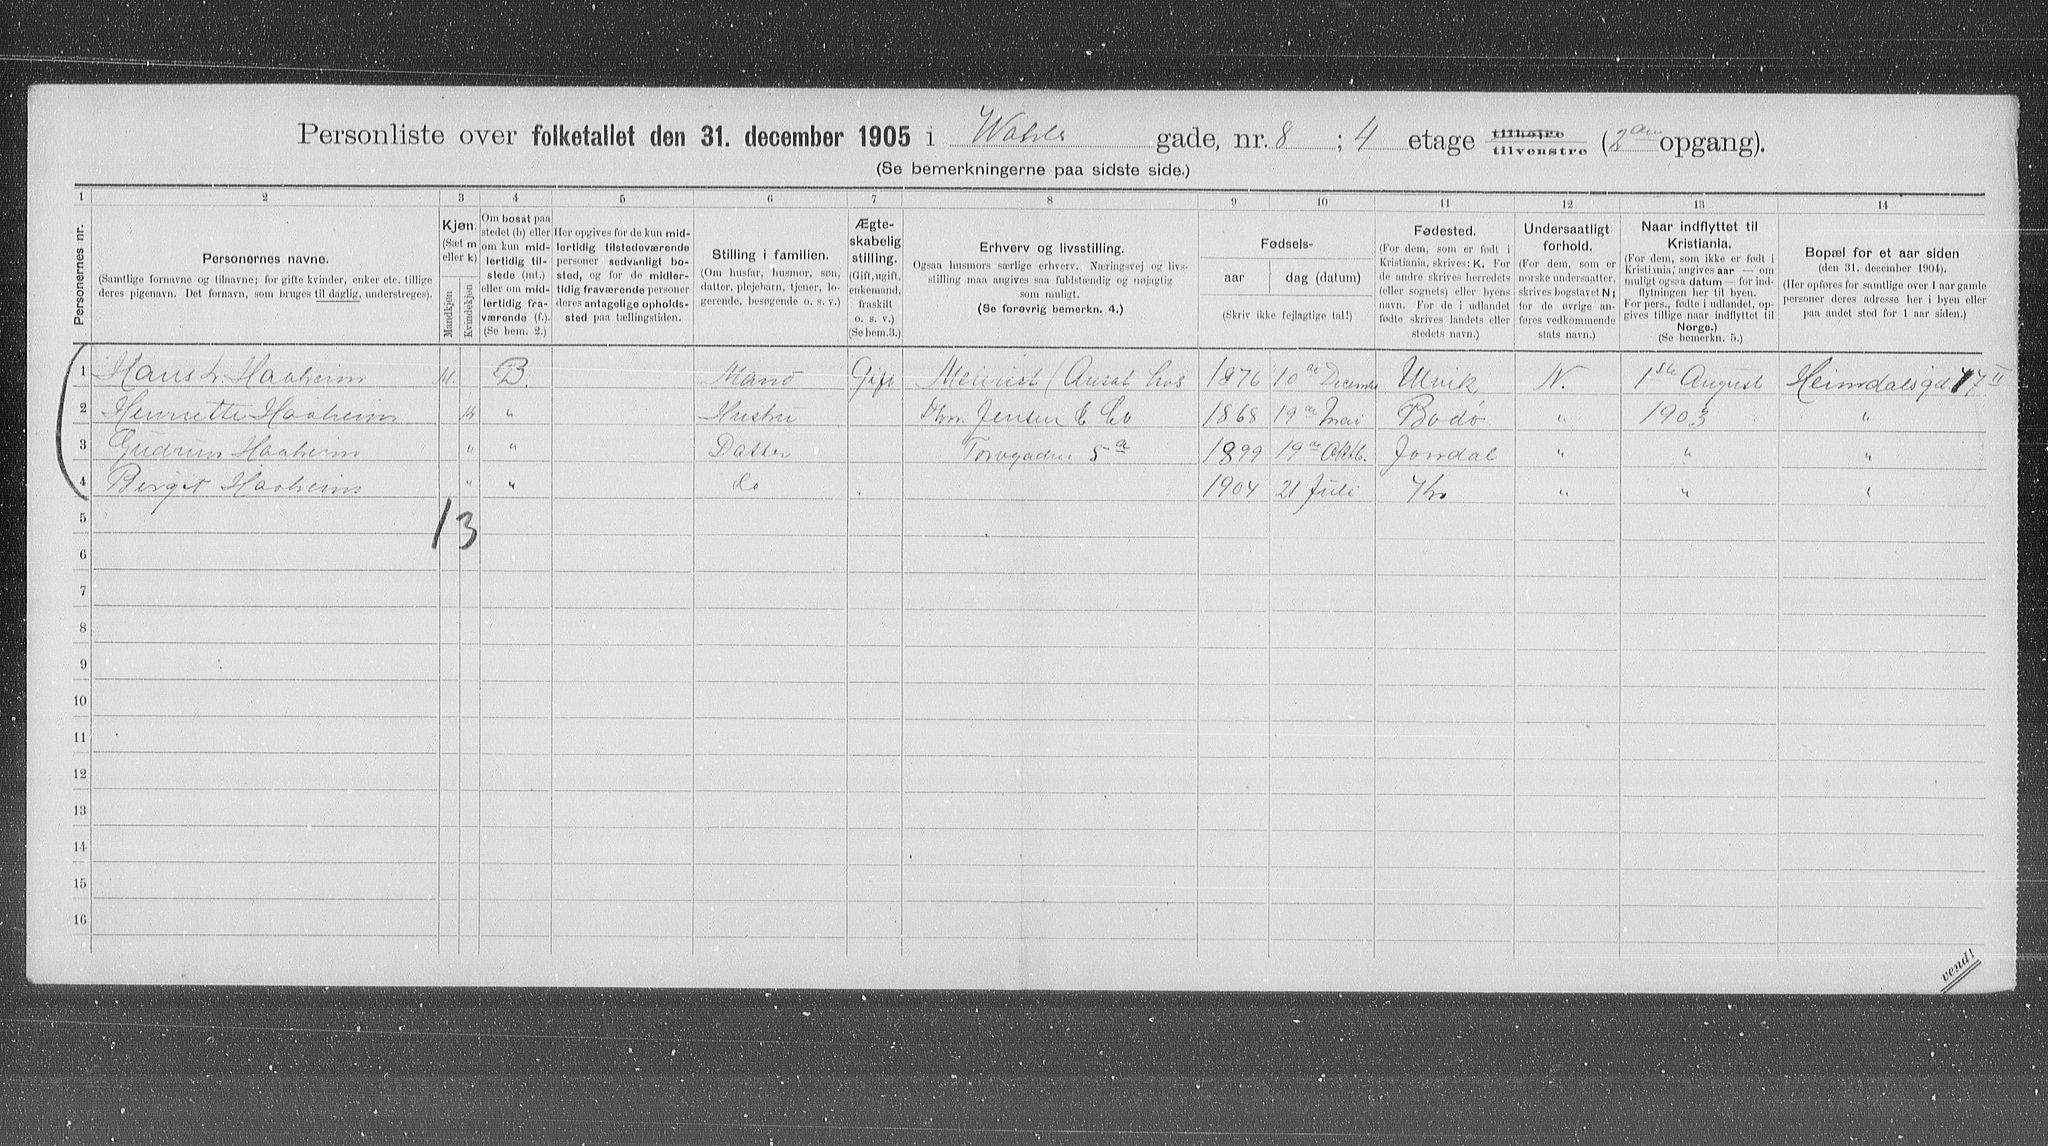 Personliste over folketallet den 31. december 1905 i Wahls gade, nr. 8 ; 4 etage tilhøjre tilvenstre (2den opgang).
(Se bemerkningerne paa sidste side.)
1 2 3 4 5 6 7 8 9 10 11 12 13 14
Personernes nr.
Personernes navne.
(Samtlige fornavne og tilnavne; for gifte kvinder, enker etc. tillige
deres pigenavn. Det fornavn, som bruges til daglig, understreges).
Kjøn.
(Sæt m
eller k)
Mandkjøn
Kvindekjøn
Om bosat paa
stedet (b) eller
om kun mid-
lertidig til-
stede (mt.)
eller om mid-
lertidig fra-
værende (f.).
(Se bem. 2.)
Her opgives for de kun mid-
lertidig tilstedeværende
personer sedvanligt bo-
sted, og for de midler-
tidig fraværende personer
deres antagelige opholds-
sted paa tællingstiden.
Stilling i familien.
(Om husfar, husmor, søn,
datter, plejebarn, tjener, lo-
gerende, besøgende o. s. v.)
Ægte-
skabelig
stilling.
(Gift, ugift,
enkemand,
fraskilt
o. s. v.)
(Se bem.3.)
Erhverv og livsstilling.
Ogsaa husmors særlige erhverv. Næringsvej og livs-
stilling maa angives saa fuldstændig og nøjagtig
som muligt.
(Se forøvrig bemerkn. 4.)
Fødsels-
aar dag (datum)
(Skriv ikke fejlagtige tal!)
Fødested.
(For dem, som er født i
Kristiania, skrives: K. For
de andre skrives herredets
(eller sognets) eller byens
navn. For de i udlandet
fødte skrives landets eller
stedets navn.)
Undersaatligt
forhold.
(For dem, som er
norske undersaatter,
skrives bogstavet N;
for de øvrige an-
føres vedkommende
stats navn.)
Naar indflyttet til
Kristiania.
(For dem, som ikke er født i
Kristiania, angives aar — om
muligt ogsaa datum — for ind-
flytningen her til byen.
For pers., fødte i udlandet, op-
gives tillige naar indflyttet til
Norge.)
(Se bemerkn. 5.)
Bopæl for et aar siden
(den 31. december 1904).
(Her opføres for samtlige over 1 aar gamle
personer deres adresse her i byen eller
paa andet sted for 1 aar siden.)
1 Hans L. Haaheim M. B. Mand Gift Ansat hos 1876 10de December Ulvik N. 1ste August Heimdalsgd 17 II
2 Henriette Haaheim k " Hustru Jensen & Co 1868 19de Mai Bodø " 1903 "
3 Gudrun Haaheim " " Datter Torvgaden 5a 1899 19de Oktb. Jondal " " "
4 Bergit Haaheim " " do 1904 21 Juli Kr. " " "
5 1 3
6
7
8
9
10
11
12
13
14
15
16
vend!